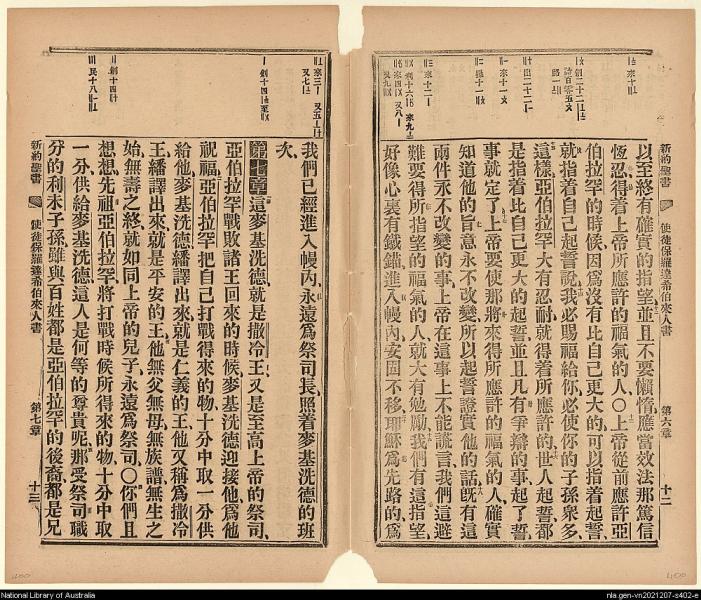 新約聖書
使徒保羅達希伯來人書
第六章
十二
以至終有確實的指望並且不要懶惰應當效法那篤信
恆忍得着上帝所應許的福氣的人〇上帝從前應許亞
伯拉罕的時候因爲沒有比自己更大的可以指着起誓
就指着自己起誓說我必賜福給你必使你的子孫衆多
這樣亞伯拉罕大有忍耐就得着所應許的世人起誓都
是指着比自己更大的起誓並且凡有爭辯的事起了誓
事就定了上帝要使那將來得所應許的福氣的人確實
知道他的旨意永不改變所以起誓證實他的話旣有這
兩件永不改變的事上帝在這事上不能謊言我們這避
難要得所指望的福氣的人就大有勉勵我們有這指望
好像心裏有鐵錨進入幔內安固不移耶穌爲先路的爲
我們已經進入幔內永遠爲祭司長照着麥基洗德的班
次
第七章 這麥基洗德就是撒冷王又是至高上帝的祭司
亞伯拉罕戰敗諸王回來的時候麥基洗德迎接他爲他
祝福亞伯拉罕把自己打戰得來的物十分中取一分供
給他麥基洗德繙譯出來就是仁義的王他又稱爲撒冷
王繙譯出來就是平安的王他無父無母無族譜無生之
始無壽之終就如同上帝的兒子永遠爲祭司〇你們且
想想先祖亞伯拉罕將打戰時候所得來的物十分中取
一分供給麥基洗德這人是何等的尊貴呢那受祭司職
分的利未子孫雖與百姓都是亞伯拉罕的後裔都是兄
新約聖書
使徒保羅達希伯來人書
第七章
十三
National Library of Australia
nla.gen-vn2021207-s402-e